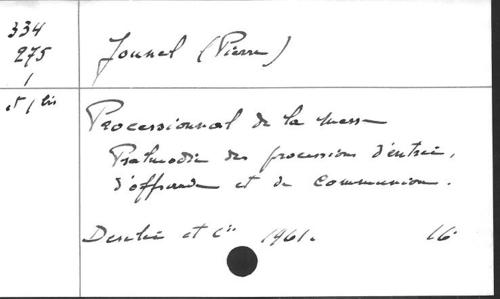 334
275
1
et 1 bis
Jounel (Pierre)
Processionnal de la messe
Psalmodie des processions d'entrée,
d'offrande et de communion.
Desclée et Cie 1961. 16°